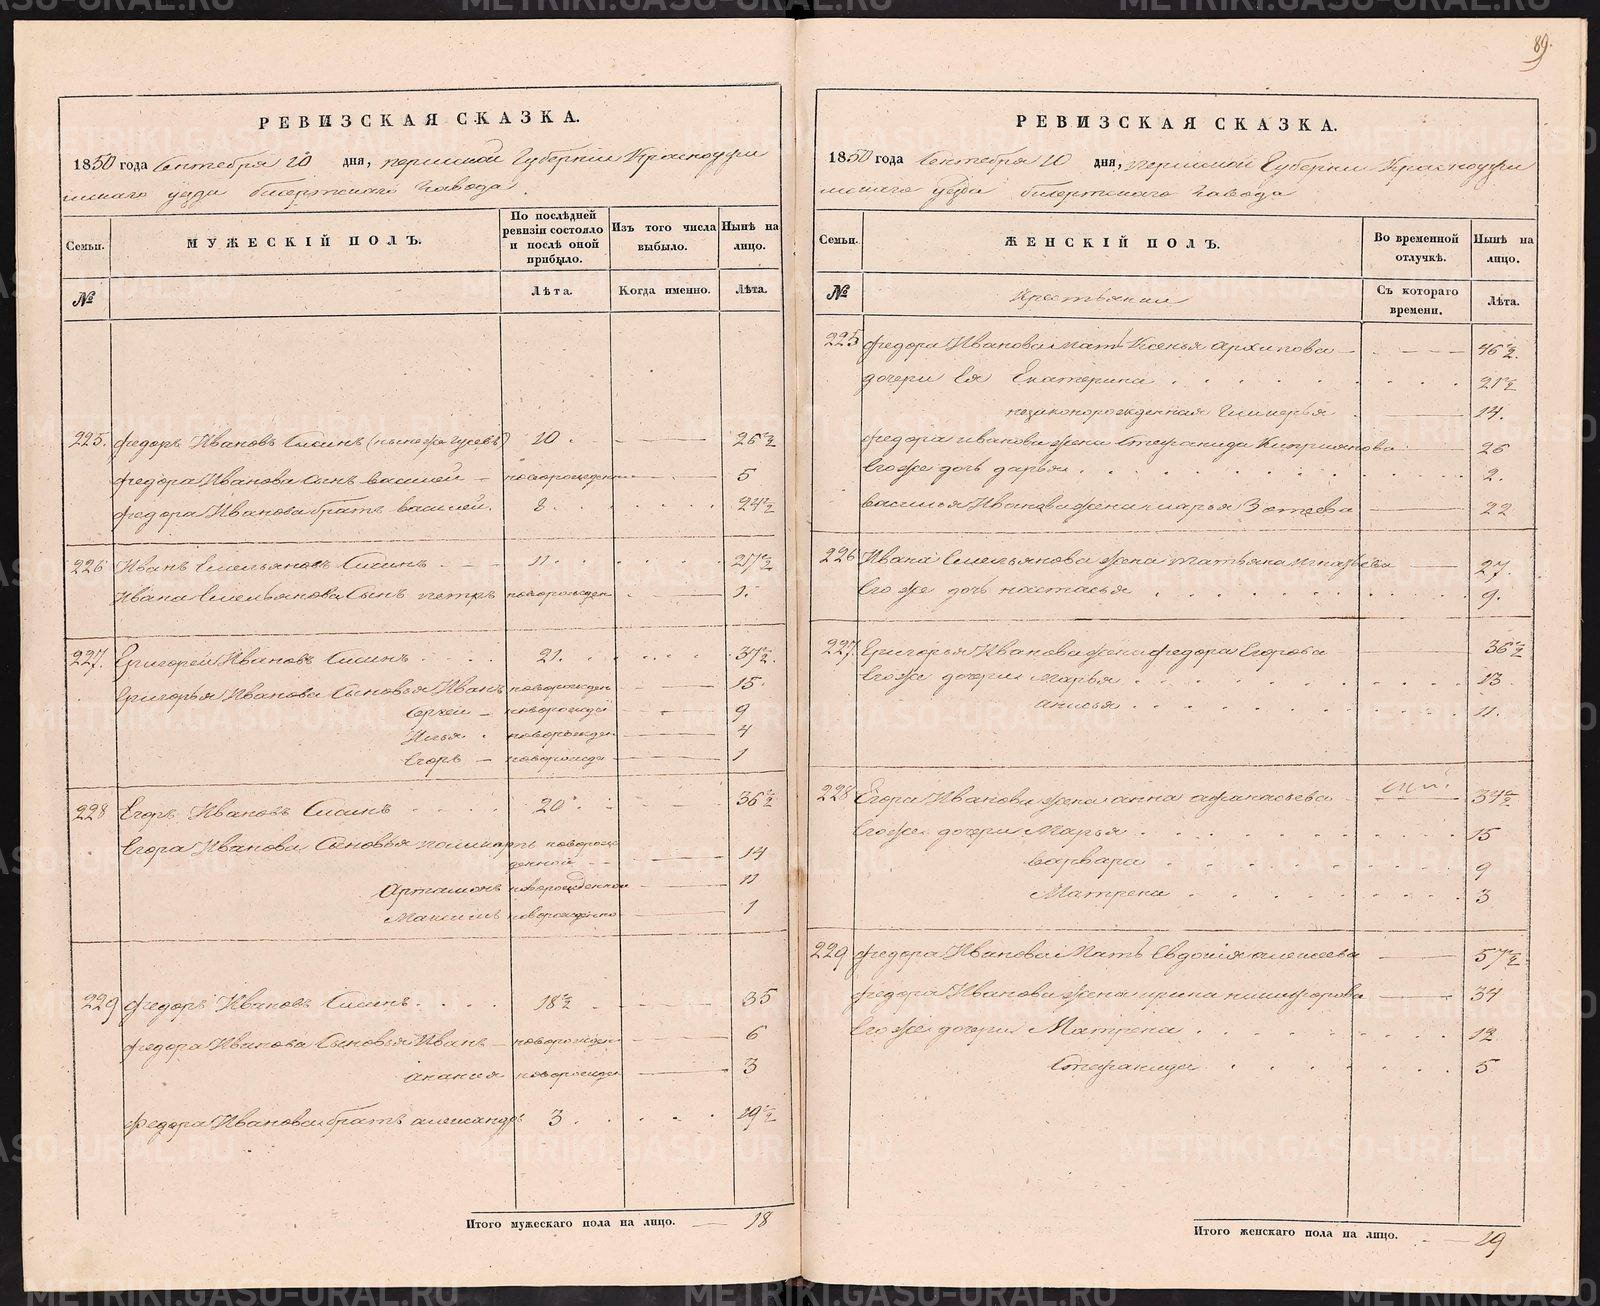 89.
РЕВИЗСКАЯ СКАЗКА.
1850 года Сентября 20 дня, пермской Губернии Красноуфим
скаго уезда бисертскаго завода.
Семьи.
МУЖЕСКІЙ ПОЛЪ.
По послѣдней ревизіи состояло и послѣ оной прибыло.
Изъ того числа выбыло.
Нынѣ на лицо.
№
Лѣта.
Когда именно.
Лѣта.
225. Федоръ Ивановъ Сысинъ 10. 26 ½
Федора Иванова Сынъ василей - новорожденный 5
Федора Иванова братъ василей. 8. 24 ½
226 Иванъ Емельяновъ Сысинъ 11. 27 ½
Ивана Емельянова Сынъ петръ новорожден 1.
227. Григорей Ивановъ Сысинъ 21. 37 ½.
Григорья Иванова Сыновья Иванъ новорожден 15.
Сергей - новорожде 9
Илья новорожден 4
Егоръ - новорожде 1
228 Егоръ Ивановъ Сысинъ 20. 36 ½
Егора Иванова Сыновья новорож
денной 14
Артамонъ новорожденной 11
Максимъ новорожденно 1
229 Федоръ Ивановъ Сысинъ 18 ½ 35
Федора Иванова Сыновья Иванъ - новорожден 6
анания новорожден 3
Федора Иванова братъ александръ 3 19 ½
Итого мужескаго пола на лицо. 18
РЕВИЗСКАЯ СКАЗКА.
1850 года Сентября 20 дня, пермской Губернии Красноуфи
мскаго уезда бисертскаго завода
Семьи.
ЖЕНСКІЙ ПОЛЪ.
Во временной отлучкѣ.
Нынѣ на лицо.
№
Крестьянки
Съ котораго времени.
Лѣта.
225 Федора Иванова мать Ксенья архипова 46 ½.
дочери Ея Екатерина 21 ½
незаконорожденная 14.
Федора иванова жена Стефанида Киприянова 26
Егоже дочь дарья 2.
василья Иванова жена марья Зотеева 22
226 Ивана Емельянова жена татьяна игнатьева 27.
Его же дочь настасья 9.
227. Григорья Иванова жена федора Егорова 36 ½
Егоже дочери Марья 13
анисья 11.
228 Егора Иванова жена анна афанасьева 34 ½
Егоже дочери Марья 15
варвара 9
Матрена 3
229 Федора Иванова Мать Евдокия алексеева 57 ½.
Федора Иванова жена ирина никифорова 34
Егоже дочери Матрена 12
Стефанида 5
Итого женскаго пола на лицо. 19
METRIKI.GASO-URAL.RU